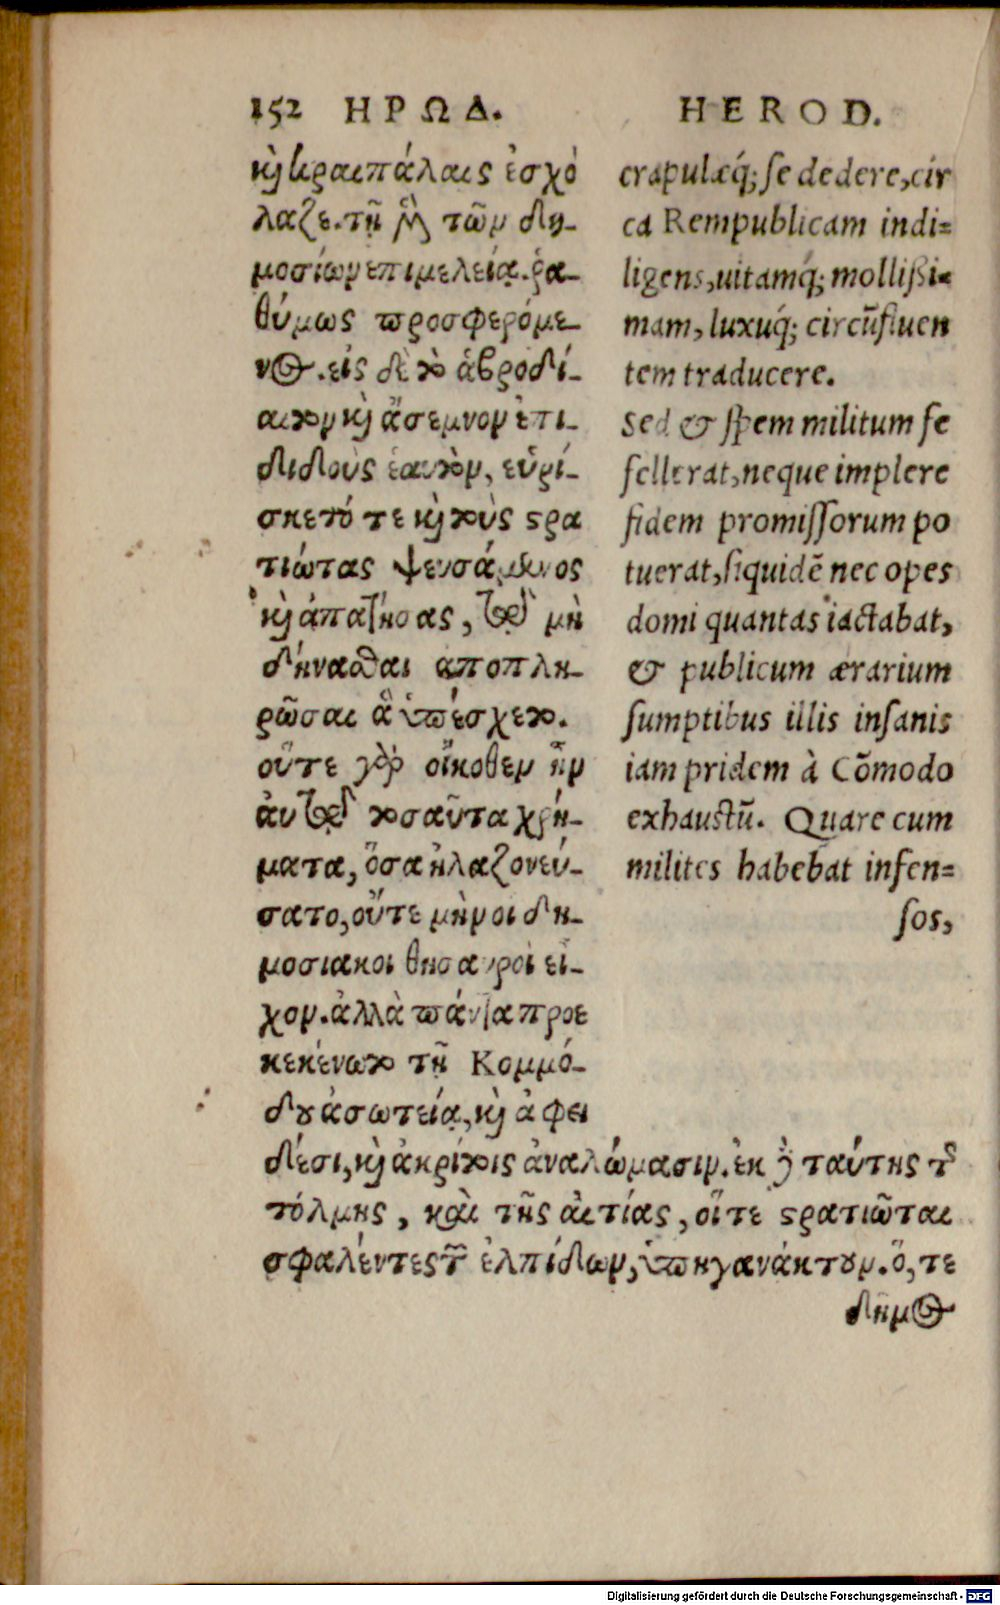 152 ΗΡΩΔ.
καὶ κραιπάλαις ἐσχό
λαζε. τῇ μὲν τῶν δη-
μοσίων επιμελείᾳ. ῥα-
θύμως προσφερόμε-
νος. εἰς δὲ τὸ ἁβροδί-
αιτον καὶ ἄσεμνον ἐπι-
διδοὺς ἑαυτὸν, εὑρί-
σκετό τε καὶ τοὺς στρα
τιώτας ψευσάμενος
καὶ ἀπατήσας, τῷ μὴ
δήνασθαι αποπλη-
ρῶσαι ἃ ὑπέσχετο.
οὔτε γὰρ οἴκοθεν ἦν
ἀυτῷ τοσαῦτα χρή-
ματα, ὅσα ἠλαζονεύ-
σατο, οὔτε μὴν οι δη-
μοσιακοι θησαυροὶ εἶ-
χον. ἀλλὰ πάντα προε
κεκένωτο τῇ Κομμό-
δου ἀσωτείᾳ, καὶ ἀφει
δέσι, καὶ ἀκρίτοις ἀναλώμασιν. ἐκ δὴ ταύτης τῆς
τόλμης, καὶ τῆς αἰτίας, οἵτε στρατιῶται
σφαλέντες τῶν ἐλπίδων, ὑπηγανάκτουν. ὅ, τε
δῆμος
HEROD.
crapulæq́; se dedere, cir
ca Rempublicam indi=
ligens, uitamq́; mollißi=
mam, luxuq́; circũfluen
tem traducere.
Sed & spem militum fe
fellerat, neque implere
fidem promissorum po
tuerat, siquidẽ nec opes
domi quantas iactabat,
& publicum ærarium
sumptibus illis insanis
iam pridem à Cõmodo
exhaustũ. Quare cum
milites habebat infen=
sos,
Digitalisierung gefördert durch die Deutsche Forschungsgemeinschaft - DFG